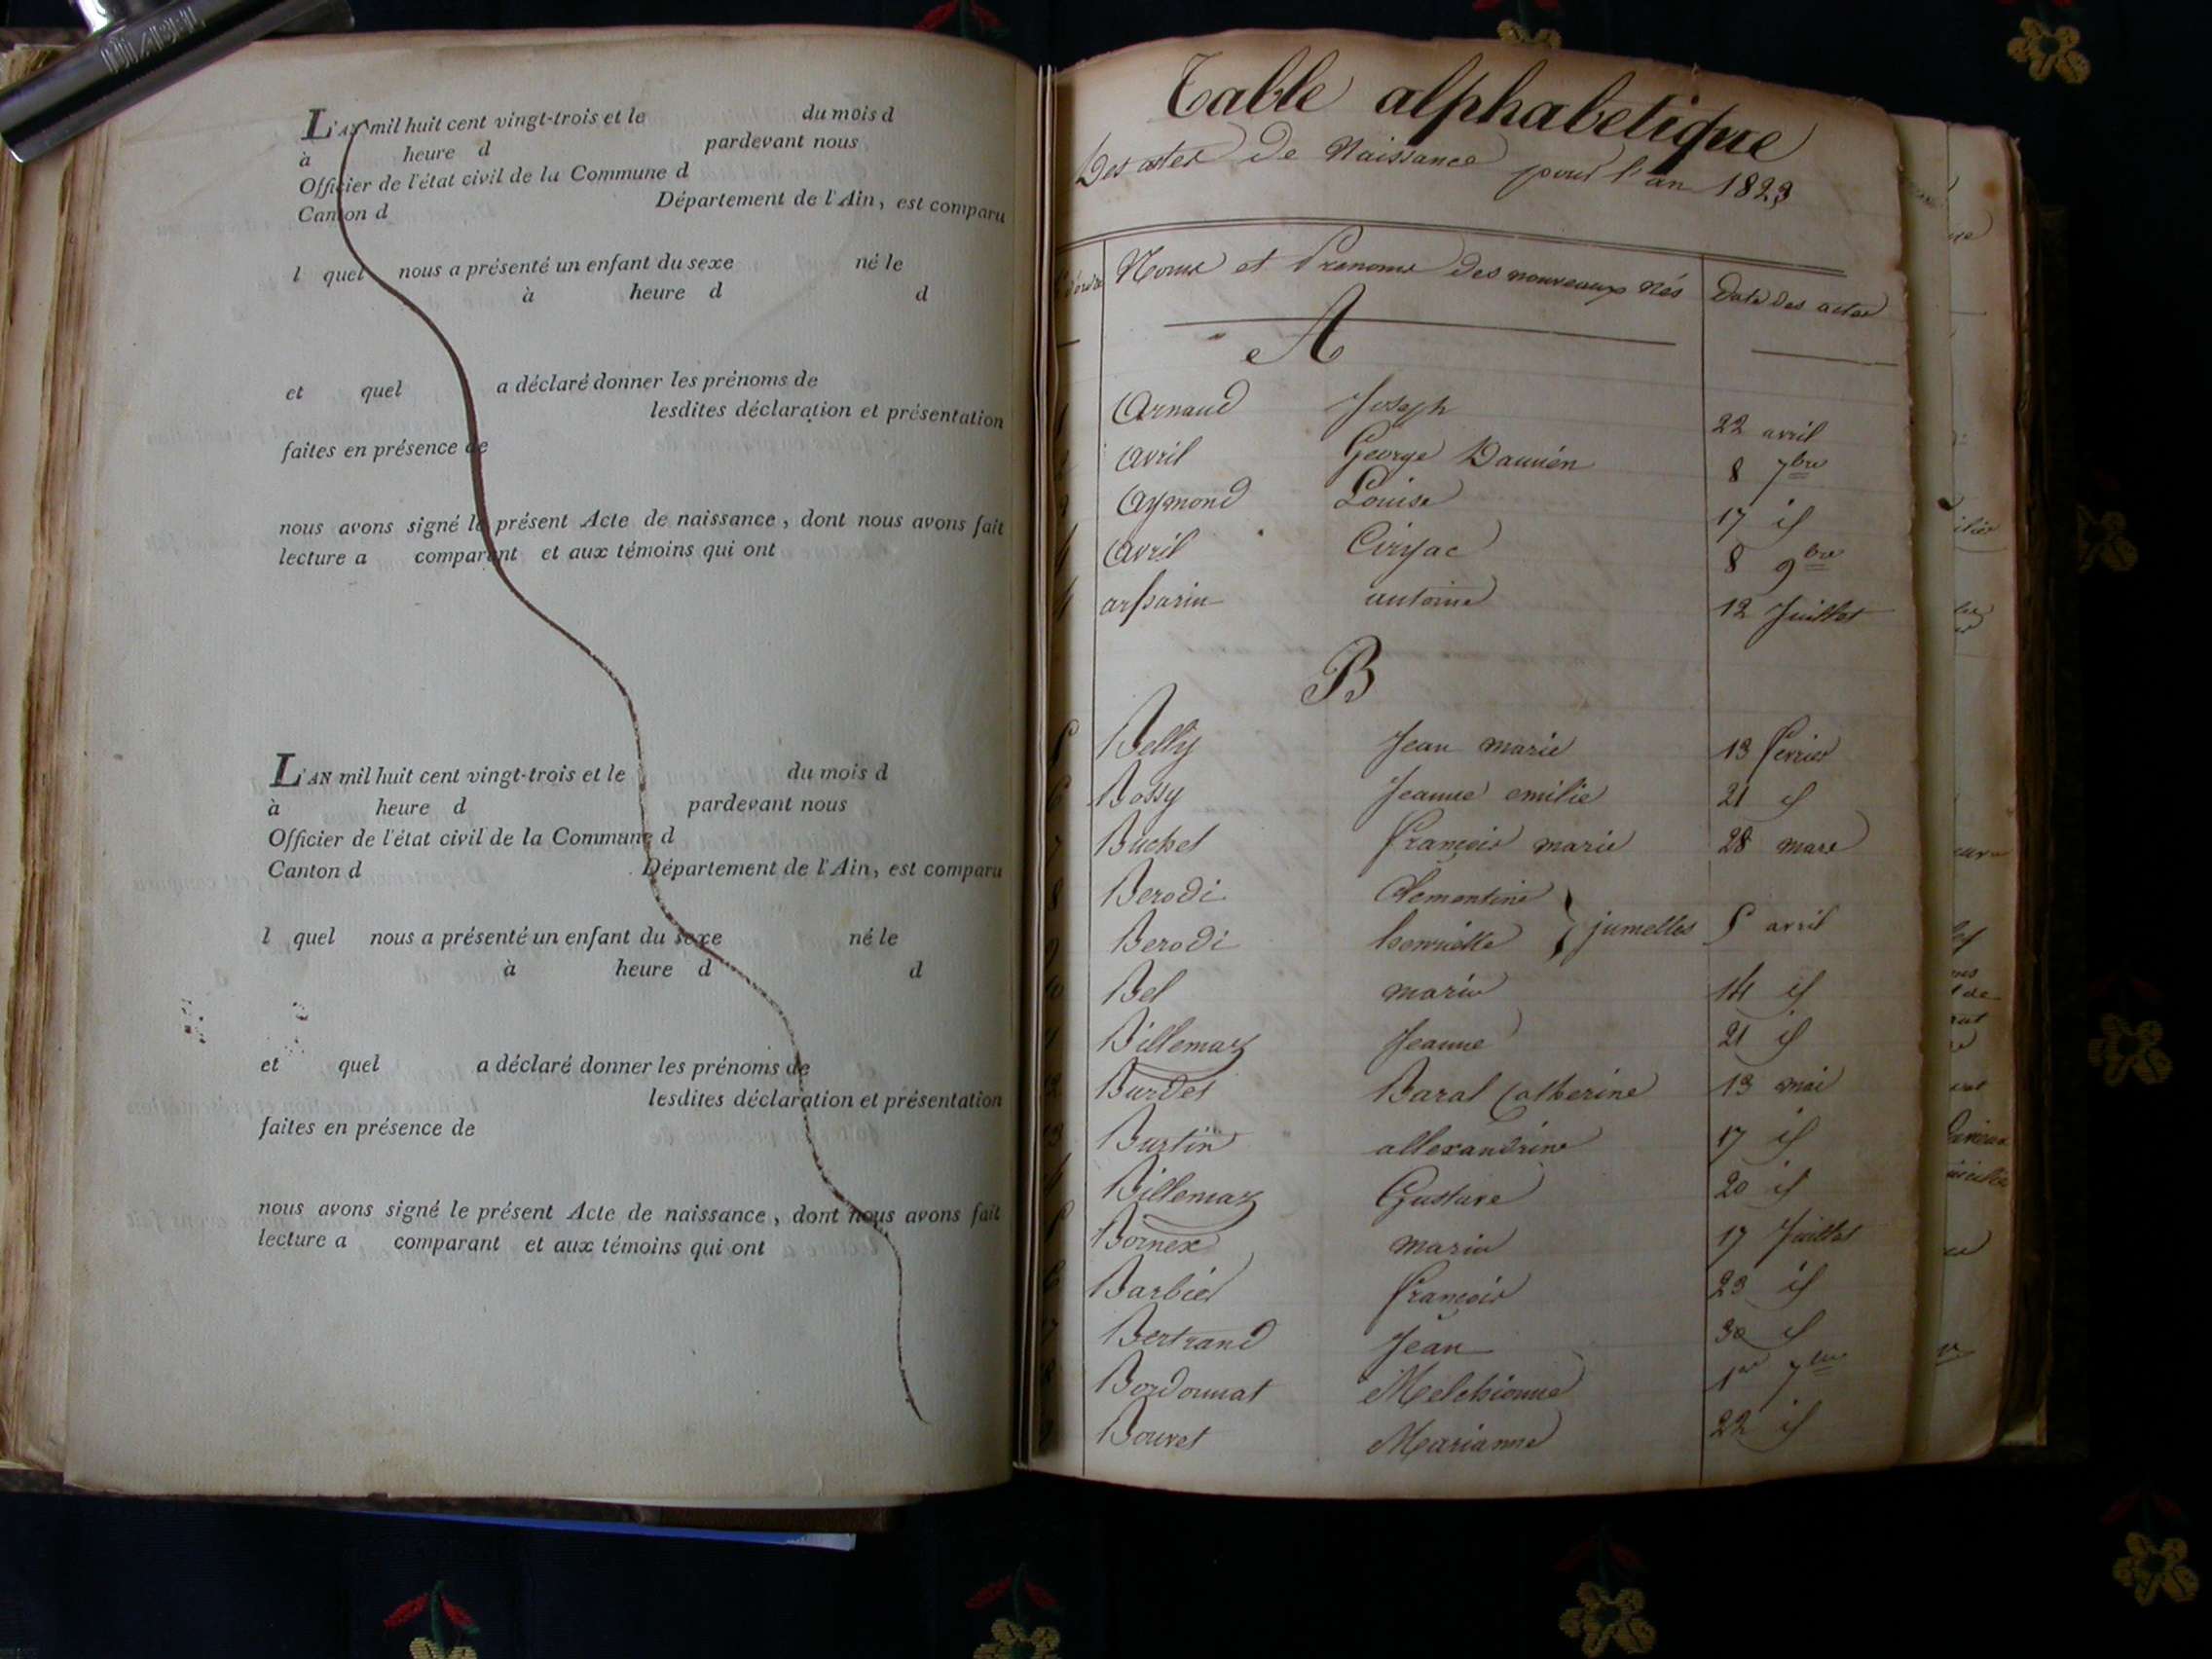 L'AN mil huit cent vingt-trois et le du mois d
à heure d pardevant nous
Officier de l'état civil de la Commune d
Canton d Département de l'Ain, est comparu
l quel nous a présenté un enfant du sexe né le
à heure d d
et quel a déclaré donner les prénoms de
lesdites déclaration et présentation
faites en présence de
nous avons signé le présent Acte de naissance, dont nous avons fait
lecture a comparant et aux témoins qui ont
L'AN mil huit cent vingt-trois et le du mois d
à heure d pardevant nous
Officier de l'état civil de la Commune d
Canton d Département de l'Ain, est comparu
l quel nous a présenté un enfant du sexe né le
à heure d d
et quel a déclaré donner les prénoms de
lesdites déclaration et présentation
faites en présence de
nous avons signé le présent Acte de naissance, dont nous avons fait
lecture a comparant et aux témoins qui ont
Table alphabetique
Des actes de Naissance pour l'an 1823
Noms et Prenoms des nouveaux Nés Date des actes
A
Arnaud Joseph 22 avril
avril George Damien 8 7bre
Aymond Louise 17 id
avril Ciryac 8 9bre
antoine 12 Juillet
B
Belly Jean marie 13 fevrier
6 Bossy Jeanne emilie 21 id
7 Buchet François marie 28 mars
8 Berodi Clementine
9 Berodi henriette } jumelles 5 avril
10 Bel marie 14 id
Billemaz Jeanne 21 id
12 Burdet Baral Catherine 13 mai
13 Burtin allexandrine 17 id
Billemaz Gustave 20 id
Bornex marie 17 Juillet
6 Barbier François 23 id
7 Bertrand Jean 30 id
8 Bordonnat Melchionne 1er 7bre
Bouvet Marianne 22 id